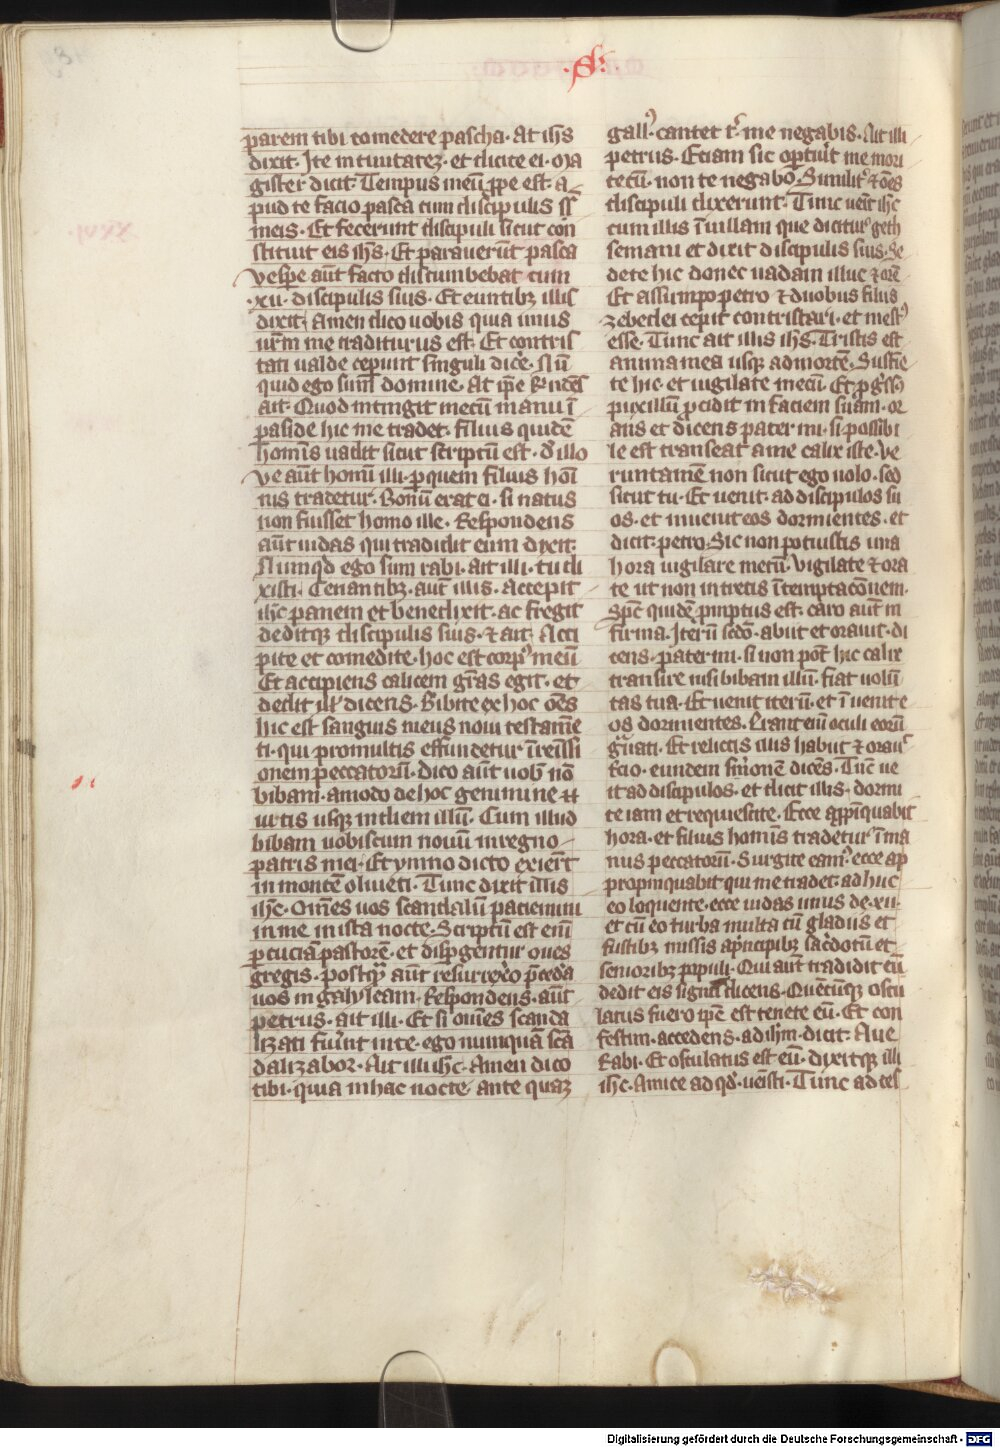 .S.
parem tibi comedere pascha. At ihs
dixit. Ite in ciuitatez. et dicite ei. Ma
gister dicit. Tempus meū ꝓpe est. a
pud te facio pasca cum discipulis
meis. Et fecerunt discipuli sicut con
stituit eis ihs. Et parauerūt pasca
vespe aūt facto discumbebat cum
.xii. discipulis suis. Et euntibꝫ illis
dixit. Amen dico uobis quia unus
urm̄ me traditurus est. Et contris
tati ualde ceperunt singuli dicē. Nū
quid ego sum domine. At ipē rn̄dēs
ait. Quod intingit mecū manū ī
paside hic me tradet. Filius quidē
hominis uadit sicut scriptū est. d' illo
ve aūt homini illi. ꝑ quem filius hoī
nis tradetur. Bonū erat ei. si natus
non fuisset homo ille. Respondens
aūt iudas qui tradidit eum dixit.
Numqd ego sum rabi. ait illi. tu di
xisti. Cenantibꝫ. aut illis. Accepit
ihc panem et benedixit. ac fregit
deditqꝫ discipulis suis. ⁊ ait. Acci
pite et comedite. hoc est corpꝰ meū
Et accipiens calicem grās egit. et
dedit ill' dicens. Bibite ex hoc ōēs
hic est sanguis meus noui testamē
ti. qui pro multis effundetur ī remissi
onem peccatorū. dico aūt uob nō
bibam. amodo de hoc genimine
uitis usqꝫ in diem illū. Cum illud
bibam uobiscum nouū in regno
patris mei. Et ymno dicto exierūt
in montē oliueti. Tunc dixit illis
ihc. Omēs uos scandalū patiemini
in me in ista nocte. Scriptū est eni
ꝑcuciā pastorē. et dispgentur oues
gregis. Postqᷓ aūt resurrexo p̄cedā
uos in galyleam. Respondens. aūt
petrus. ait illi. Et si omēs scanda
lizati fuīnt in te. ego numquā scā
dalizabor. Ait illi ihc. Amen dico
tibi. quia in hac nocte. ante quaz
gallꝰ. cantet me negabis. Ait illi
petrus. Etiam sic oportuīt me mori
tecū. non te negabo. Similit' ⁊ oēs
discipuli dixerunt. Tunc ueīt ihc
cum illis ī uillam que dicitur geth
semani et dixit discipulis suis. Se
dete hic donec uadam illuc ⁊ orē
Et assumpo petro ⁊ duobus filiis
zebedei cepit contristari. et mestꝰ
esse. Tunc ait illis ihs. Tristis est
anima mea usqꝫ ad mortē. Sustīe
te hic. et uigilate mecū. Et ꝓgss'
puxillū ꝓcidit in faciem suam. or
ans et dicens pater mi. si possibi
le est transeat a me calix iste. Ve
runtamē non sicut ego uolo. sed
sicut tu. Et uenit ad discipulos su
os. et inueniteos dormientes. et
dicit. petro. Sic non potuistis una
hora uigilare mecū. Vigilate ⁊ ora
te ut non intretis ī temptacōnem.
Spc quidē promptus est. caro aut in
firma. Iterū scdō. abiit et orauit. di
cens. pater mi. si non pōt hic calix
transire nisi bibam illū. fiat uolū
tas tua. Et uenit iterū. et īuenit e
os dormientes. Erant eni oculi eorū
gᵃuati. Et relictis illis habiit ⁊ orau'
tcio. eundem smonē dicēs. Tūc ue
it ad discipulos. et dicit illis. dormi
te iam et requiescite. Ecce appinquabit
hora. et filius hominis tradetur ī ma
nus peccatorū. Surgite eam'. ecce ap
propinquabit qui me tradet. adhuc
eo loquente. ecce iudas unus de .xii.
et cū eo turba multa cū gladiis et
fustibꝫ missis a pncipibꝫ sacdotū et
senioribꝫ populi. Qui aut tradidit eū
dedit eis signū dicens. Quēcūqꝫ oscu
latus fuero ipē est tenete eū. Et con
festim. accedens. ad ihm. dicit. Aue
rabi. Et osculatus est eū. dixitqꝫ illi
ihc. Amice ad qd. uēisti. Tunc ad ces
Digitalisierung gefördert durch die Deutsche Forschungsgemeinschaft - DFG